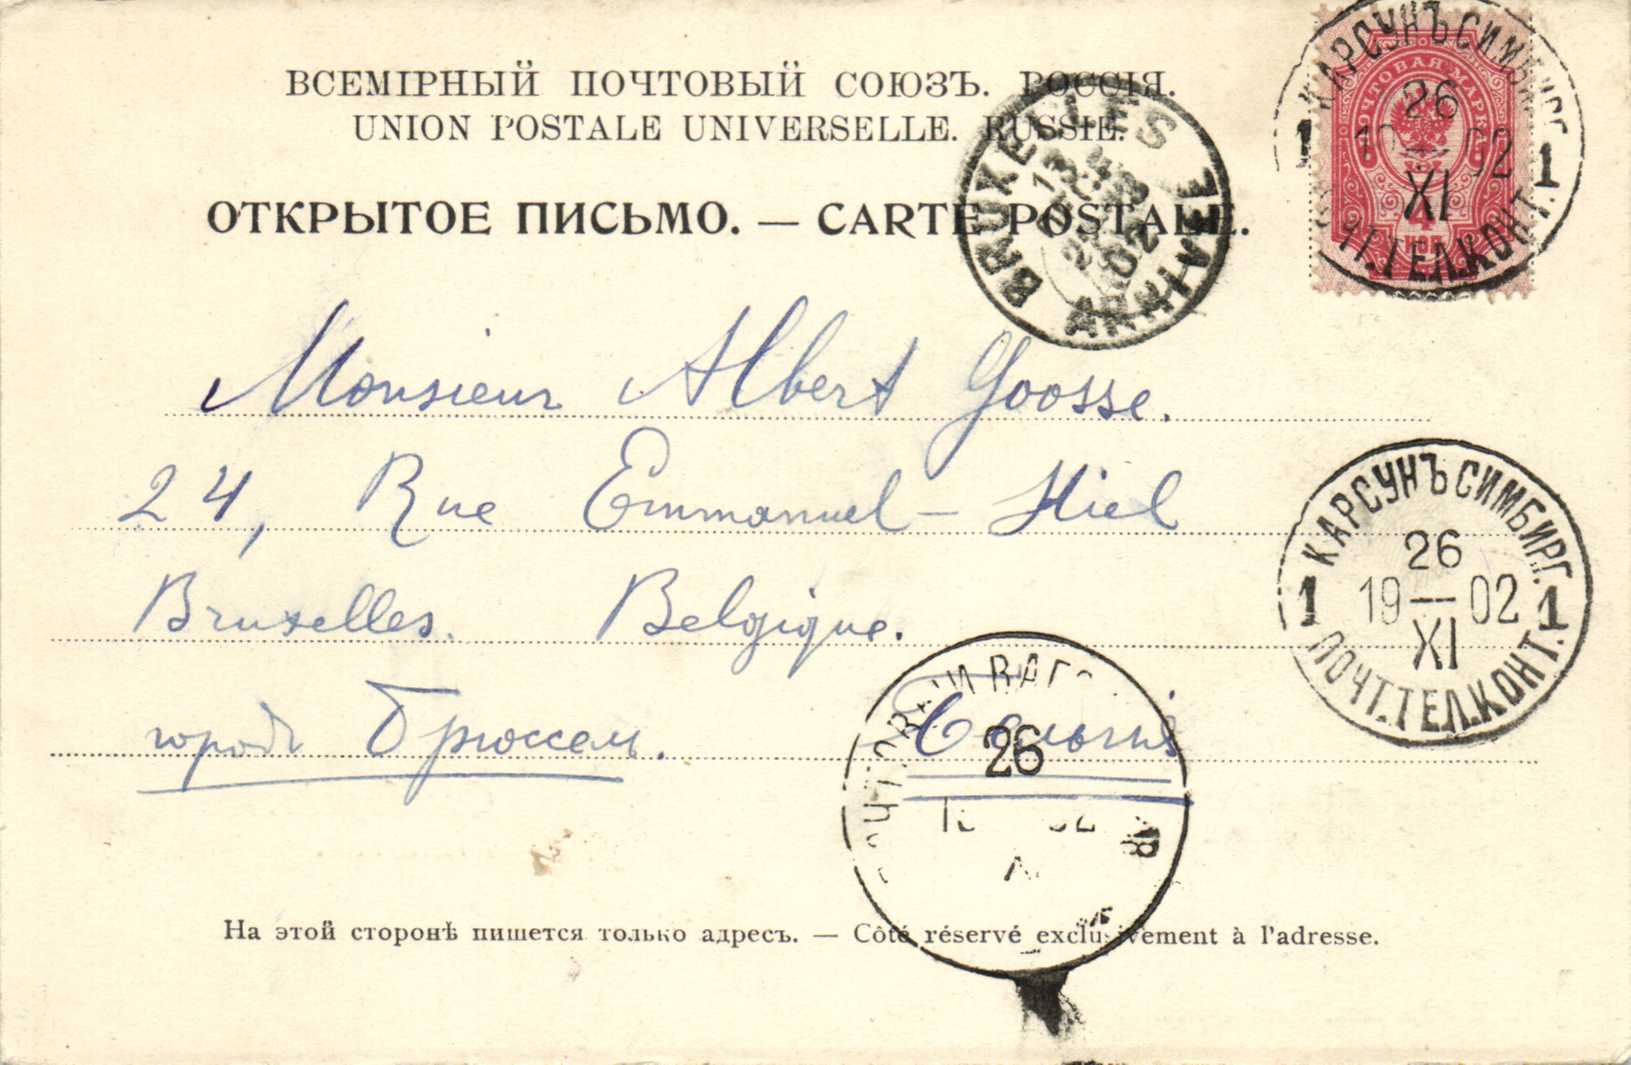 ВСЕМІРНЫЙ ПОЧТОВЫЙ СОЮЗЪ. РОССІЯ.
UNION POSTALE UNIVERSELLE. RUSSIE.
ОТКРЫТОЕ ПИСЬМО. — CARTE POSTALE.
BRUXELLES
02
ARRIVÉE
КАРСУНЪ СИМБИРГ.
26
1 19—02 1
XI
ПОЧТ.ТЕЛ.КОНТ.
ПОЧТОВАЯ МАРКА
4
КОП
Monsieur Albert Goosse.
24, Rue Emmanuel-Hiel
Bruxelles. Belgique.
городъ Брюссель.
КАРСУНЪ СИМБИРГ.
26
1 19—02 1
XI
ПОЧТ.ТЕЛ.КОНТ.
26
На этой сторонѣ пишется только адресъ. — Côté réservé exclusivement à l'adresse.